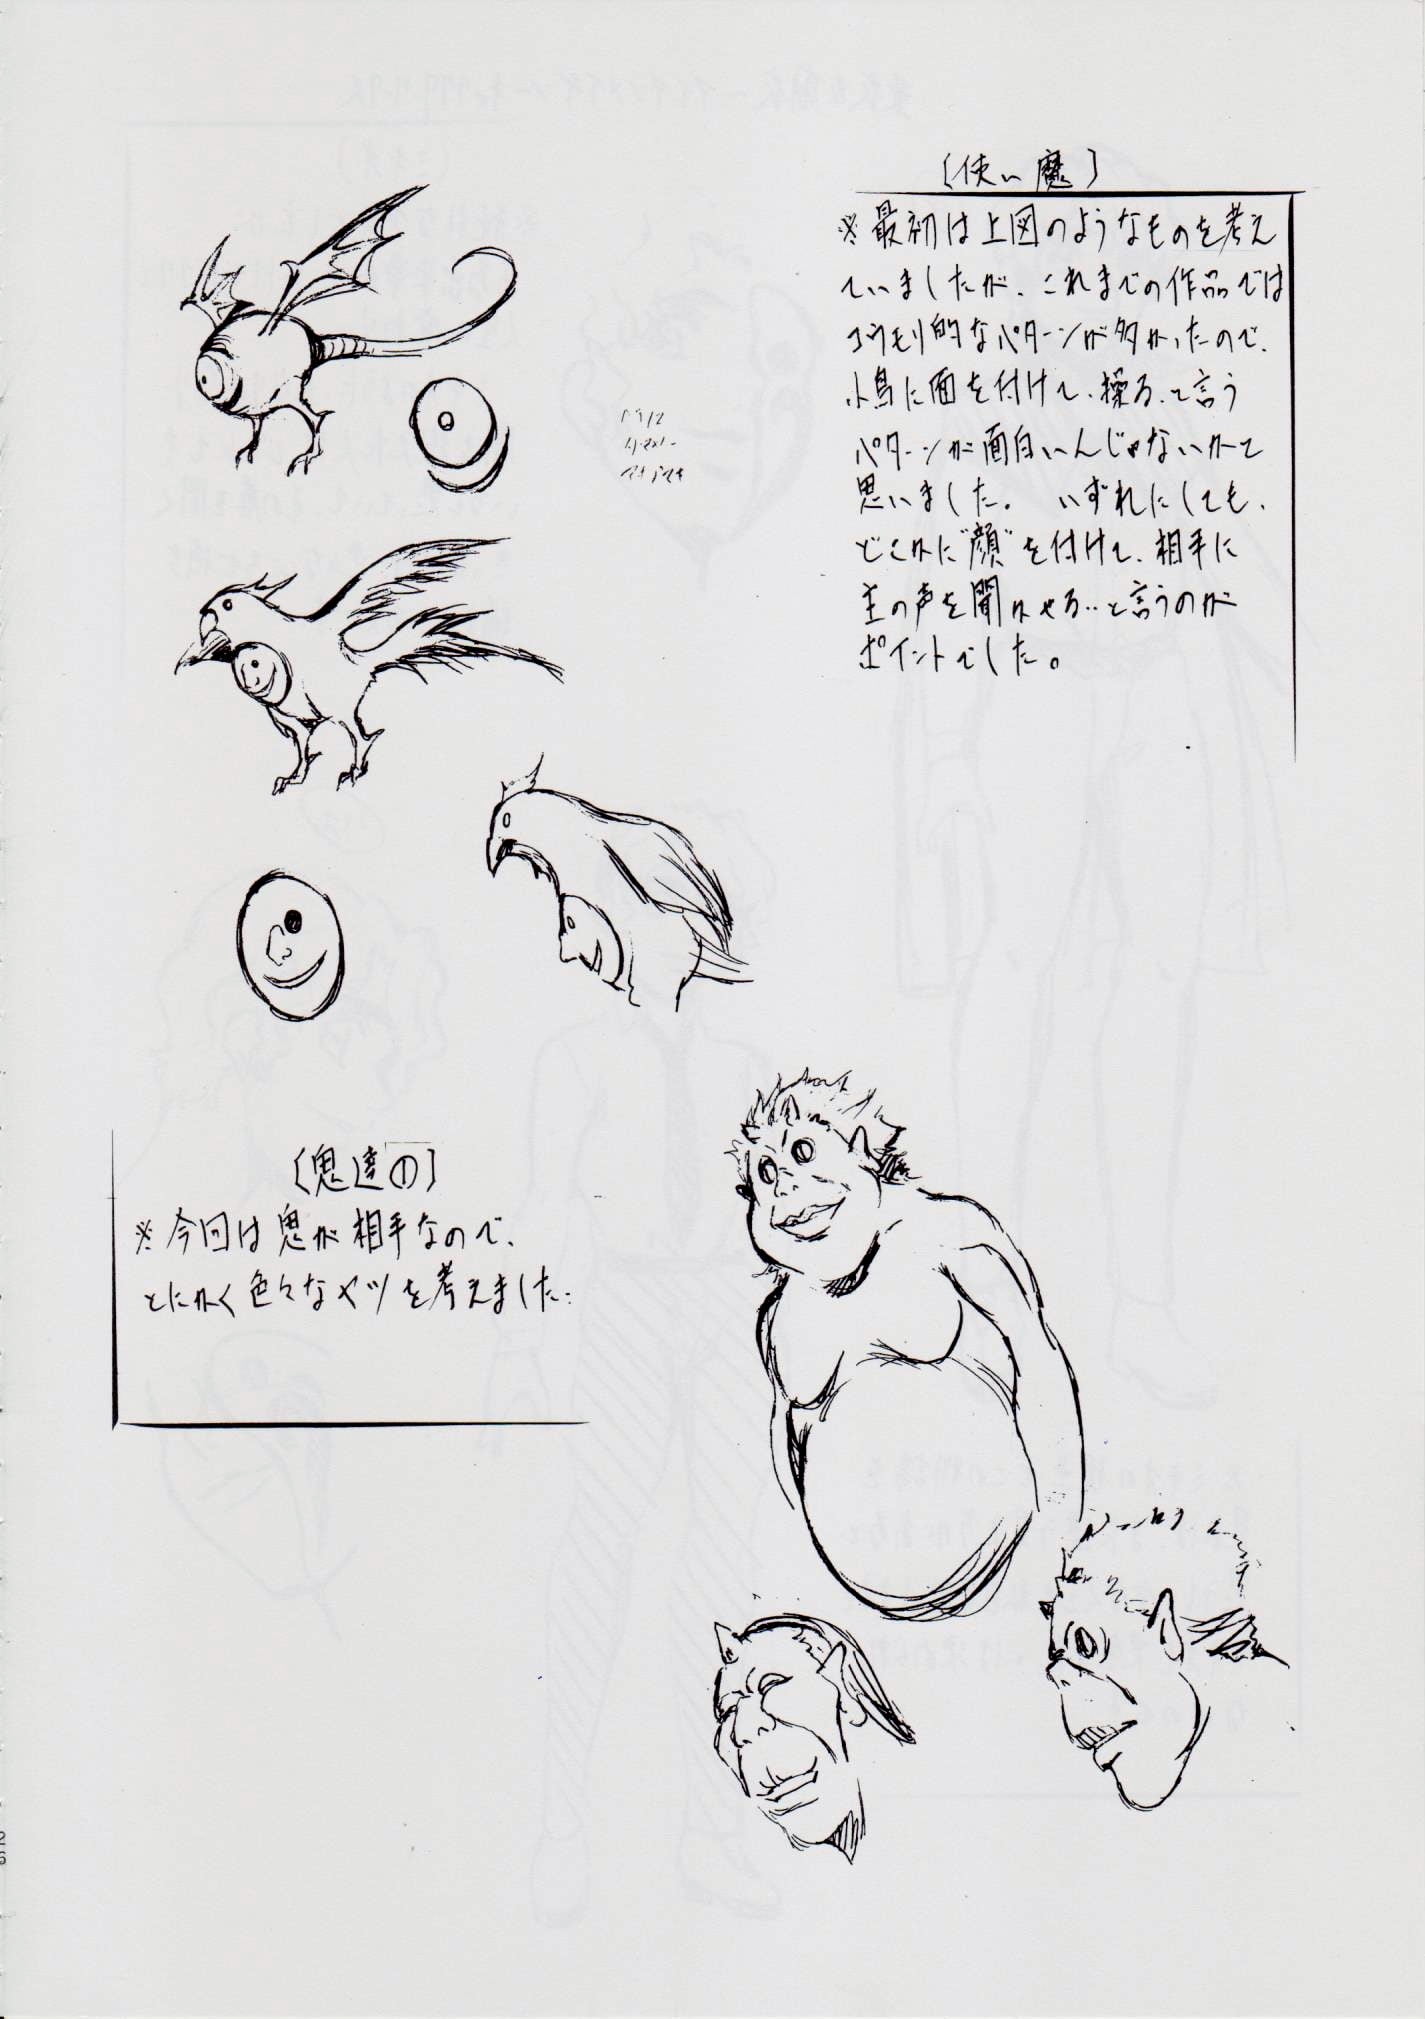 〔使い魔〕
※最初は上図のようなものを考え
ていましたが、これまでの作品では
コウモリ的なパターンが多かったので、
小鳥に面を付けて、操る、て言う
パターンが面白いんじゃないかて
思いました。 いずれにしても、
どこかに"顔"を付けて、相手に
主の声を聞かせる‥と言うのが
ポイントでした。
〔鬼達①〕
※今回は鬼が相手なので、
とにかく色々なヤツを考えました‥
26